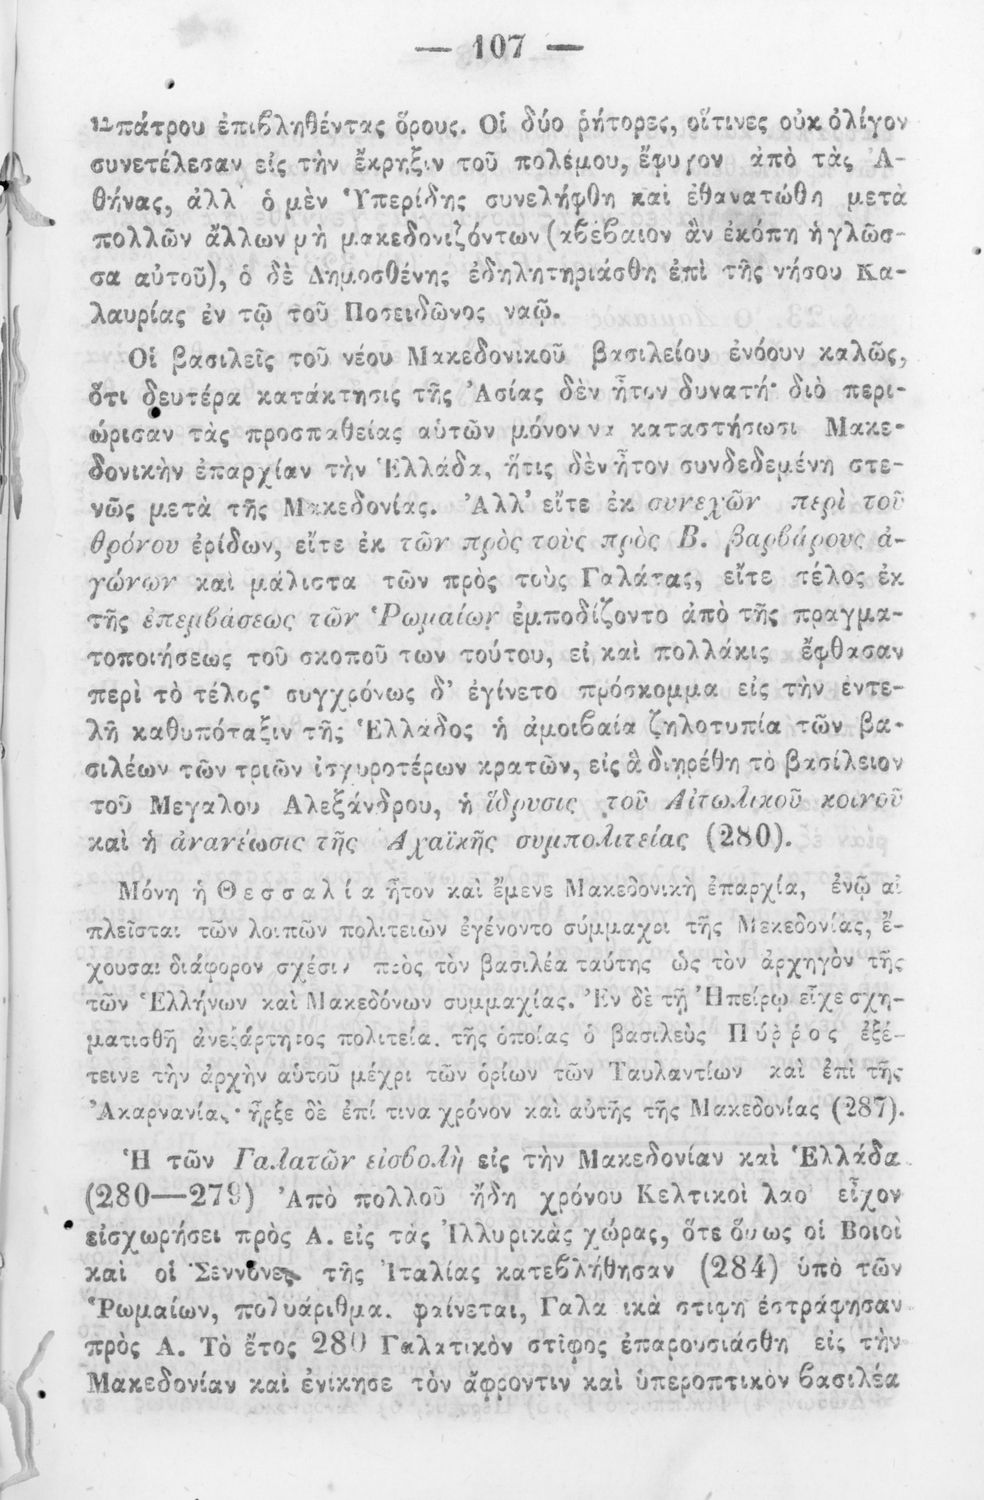 — 107 —
τιπάτρου ἐπιβληθέντας ὅρους. Οἱ δύο ῥήτορες, οἵτινες οὐκ ὀλίγον
συνετέλεσαν εἰς τὴν ἔκρηξιν τοῦ πολέμου, ἔφυγον ἀπὸ τὰς Ἀ-
θήνας, ἀλλ' ὁ μὲν Ὑπερίδης συνελήφθη καὶ ἐθανατώθη μετὰ
πολλῶν ἄλλων μὴ μακεδονιζόντων (ἀβέβαιον ἂν ἐκόπη ἡ γλῶσ-
σα αὐτοῦ), ὁ δὲ Δημοσθένης ἐδηλητηριάσθη ἐπὶ τῆς νήσου Κα-
λαυρίας ἐν τῷ τοῦ Ποσειδῶνος ναῷ.
Οἱ βασιλεῖς τοῦ νέου Μακεδονικοῦ βασιλείου ἐνόουν καλῶς,
ὅτι δευτέρα κατάκτησις τῆς Ἀσίας δὲν ἦτον δυνατή· διὸ περι-
ώρισαν τὰς προσπαθείας αὑτῶν μόνον να καταστήσωσι Μακε-
δονικὴν ἐπαρχίαν τὴν Ἑλλάδα, ἥτις δὲν ἦτον συνδεδεμένη στε-
νῶς μετὰ τῆς Μακεδονίας. Ἀλλ' εἴτε ἐκ συνεχῶν περὶ τοῦ
θρόνου ἐρίδων, εἴτε ἐκ τῶν πρὸς τοὺς πρὸς Β. βαρβάρους ἀ-
γώνων καὶ μάλιστα τῶν πρὸς τοὺς Γαλάτας, εἴτε τέλος ἐκ
τῆς ἐπεμβάσεως τῶν Ῥωμαίων ἐμποδίζοντο ἀπὸ τῆς πραγμα-
τοποιήσεως τοῦ σκοποῦ των τούτου, εἰ καὶ πολλάκις ἔφθασαν
περὶ τὸ τέλος· συγχρόνως δ' ἐγίνετο πρόσκομμα εἰς τὴν ἐντε-
λῆ καθυπόταξιν τῆς Ἑλλάδος ἡ ἀμοιβαία ζηλοτυπία τῶν βα-
σιλέων τῶν τριῶν ἰσχυροτέρων κρατῶν, εἰς ἃ διῃρέθη τὸ βασίλειον
τοῦ Μεγαλου Ἀλεξάνδρου, ἡ ἵδρυσις τοῦ Αἰτωλικοῦ κοινοῦ
καὶ ἡ ἀνανέωσις τῆς Ἀχαϊκῆς συμπολιτείας (280).
Μόνη ἡ Θεσσαλία ἦτον καὶ ἔμενε Μακεδονικὴ ἐπαρχία, ἐνῷ αἱ
πλεῖσται τῶν λοιπῶν πολιτειῶν ἐγένοντο σύμμαχοι τῆς Μακεδονίας, ἔ-
χουσαι διάφορον σχέσιν πρὸς τὸν βασιλέα ταύτης ὡς τὸν ἀρχηγὸν τῆς
τῶν Ἑλλήνων καὶ Μακεδόνων συμμαχίας. Ἐν δὲ τῇ Ἠπείρῳ εἶχε σχη-
ματισθῆ ἀνεξάρτητος πολιτεία, τῆς ὁποίας ὁ βασιλεὺς Πύρρος ἐξέ-
τεινε τὴν ἀρχὴν αὑτοῦ μέχρι τῶν ὁρίων τῶν Ταυλαντίων καὶ ἐπὶ τῆς
Ἀκαρνανίας· ἦρξε δὲ ἐπί τινα χρόνον καὶ αὐτῆς τῆς Μακεδονίας (287).
Ἡ τῶν Γαλατῶν εἰσβολὴ εἰς τὴν Μακεδονίαν καὶ Ἑλλάδα
(280—279) Ἀπὸ πολλοῦ ἤδη χρόνου Κελτικοὶ λαο' εἶχον
εἰσχωρήσει πρὸς Α. εἰς τὰς Ἰλλυρικὰς χώρας, ὅτε ὅμως οἱ Βοιοὶ
καὶ οἱ Σεννόνες τῆς Ἰταλίας κατεβλήθησαν (284) ὑπὸ τῶν
Ῥωμαίων, πολυάριθμα, φαίνεται, Γαλατικὰ στίφη ἐστράφησαν
πρὸς Α. Τὸ ἔτος 280 Γαλατικὸν στῖφος ἐπαρουσιάσθη εἰς τὴν
Μακεδονίαν καὶ ἐνίκησε τὸν ἄφροντιν καὶ ὑπεροπτικὸν βασιλέα